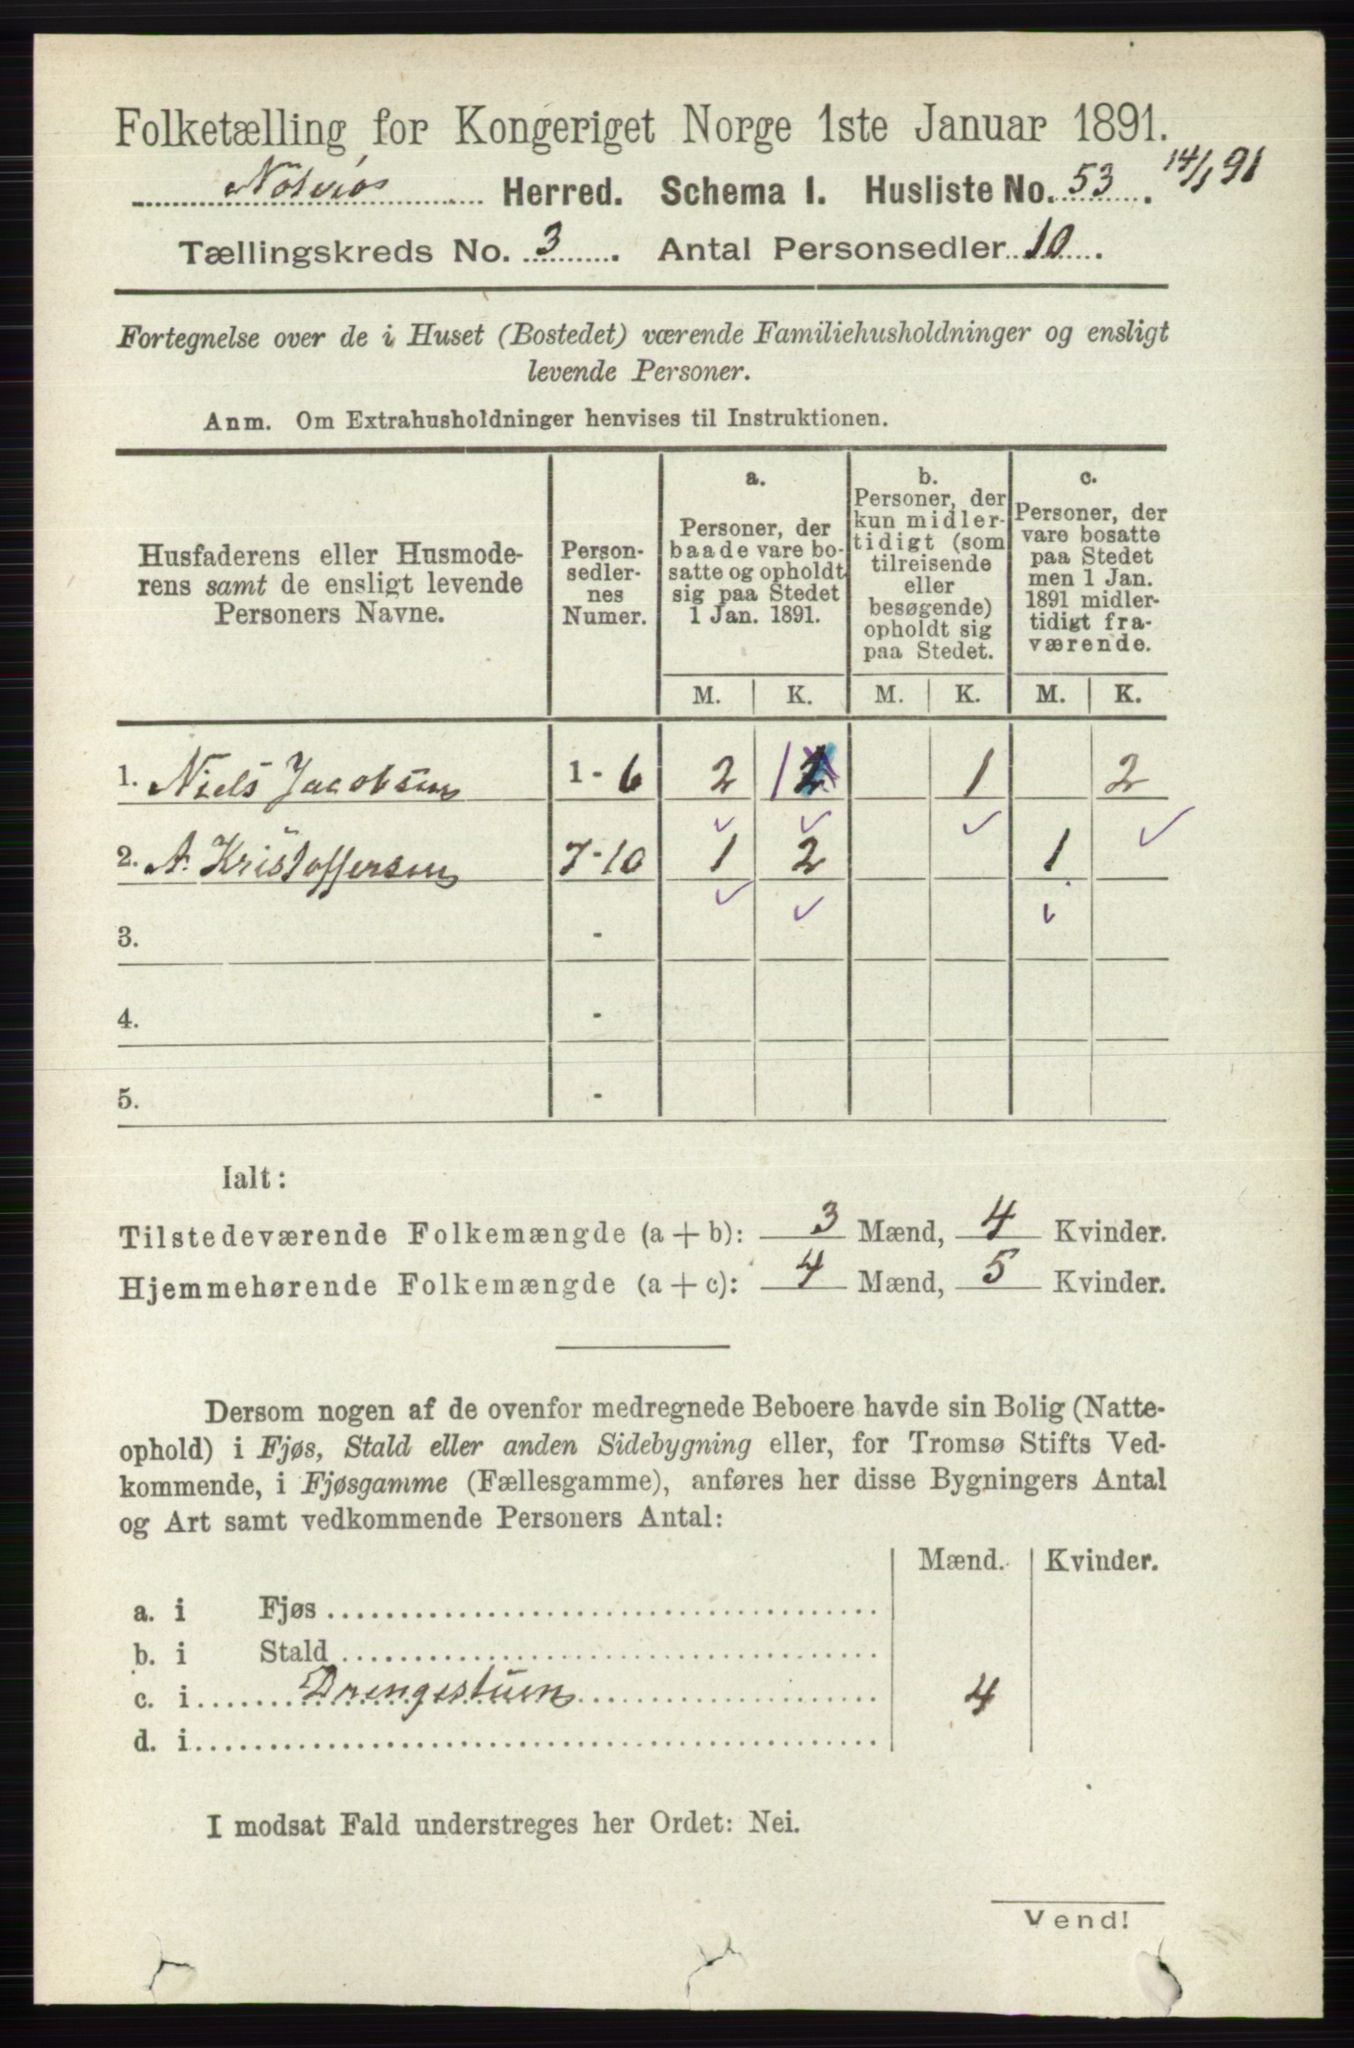 Folketælling for Kongeriget Norge 1ste Januar 1891.
Herred. Schema I. Husliste No. 53. 14/1 91
Tællingskreds No. 3. Antal Personsedler 10.
Fortegnelse over de i Huset (Bostedet) værende Familiehusholdninger og ensligt
levende Personer.
Anm. Om Extrahusholdninger henvises til Instruktionen.
Husfaderens eller Husmode-
rens samt de ensligt levende
Personers Navne.
Person-
sedler-
nes
Numer.
a.
Personer, der
baade vare bo-
satte og opholdt
sig paa Stedet
1 Jan. 1891.
b.
Personer, der
kun midler-
tidigt (som
tilreisende
eller
besøgende)
opholdt sig
paa Stedet.
c.
Personer, der
vare bosatte
paa Stedet
men 1 Jan.
1891 midler-
tidigt fra-
værende.
M. K. M. K. M. K.
1. Niels Jacobsen 1 - 6 2 1 2 1 2
2. A. Kristoffersen 7 - 10 1 2 1
3. -
4. -
5. -
Ialt:
Tilstedeværende Folkemængde (a + b): 3 Mænd, 4 Kvinder.
Hjemmehørende Folkemængde (a + c): 4 Mænd, 5 Kvinder.
Dersom nogen af de ovenfor medregnede Beboere havde sin Bolig (Natte-
ophold) i Fjøs, Stald eller anden Sidebygning eller, for Tromsø Stifts Ved-
kommende, i Fjøsgamme (Fællesgamme), anføres her disse Bygningers Antal
og Art samt vedkommende Personers Antal:
Mænd. Kvinder.
a. i Fjøs
b. i Stald
c. i Drengestuen 4
d. i
I modsat Fald understreges her Ordet: Nei.
Vend!